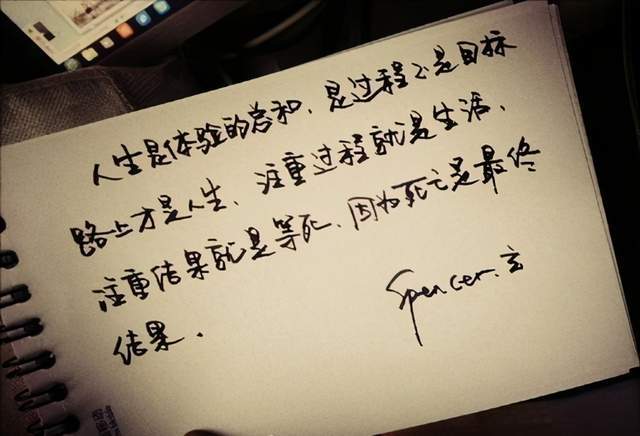 人生是体验的总和、是过程不是目标
路上才是人生、注重过程就是生活、
注重结果就是等死、因为死亡是最终
结果.
Spencer.玄